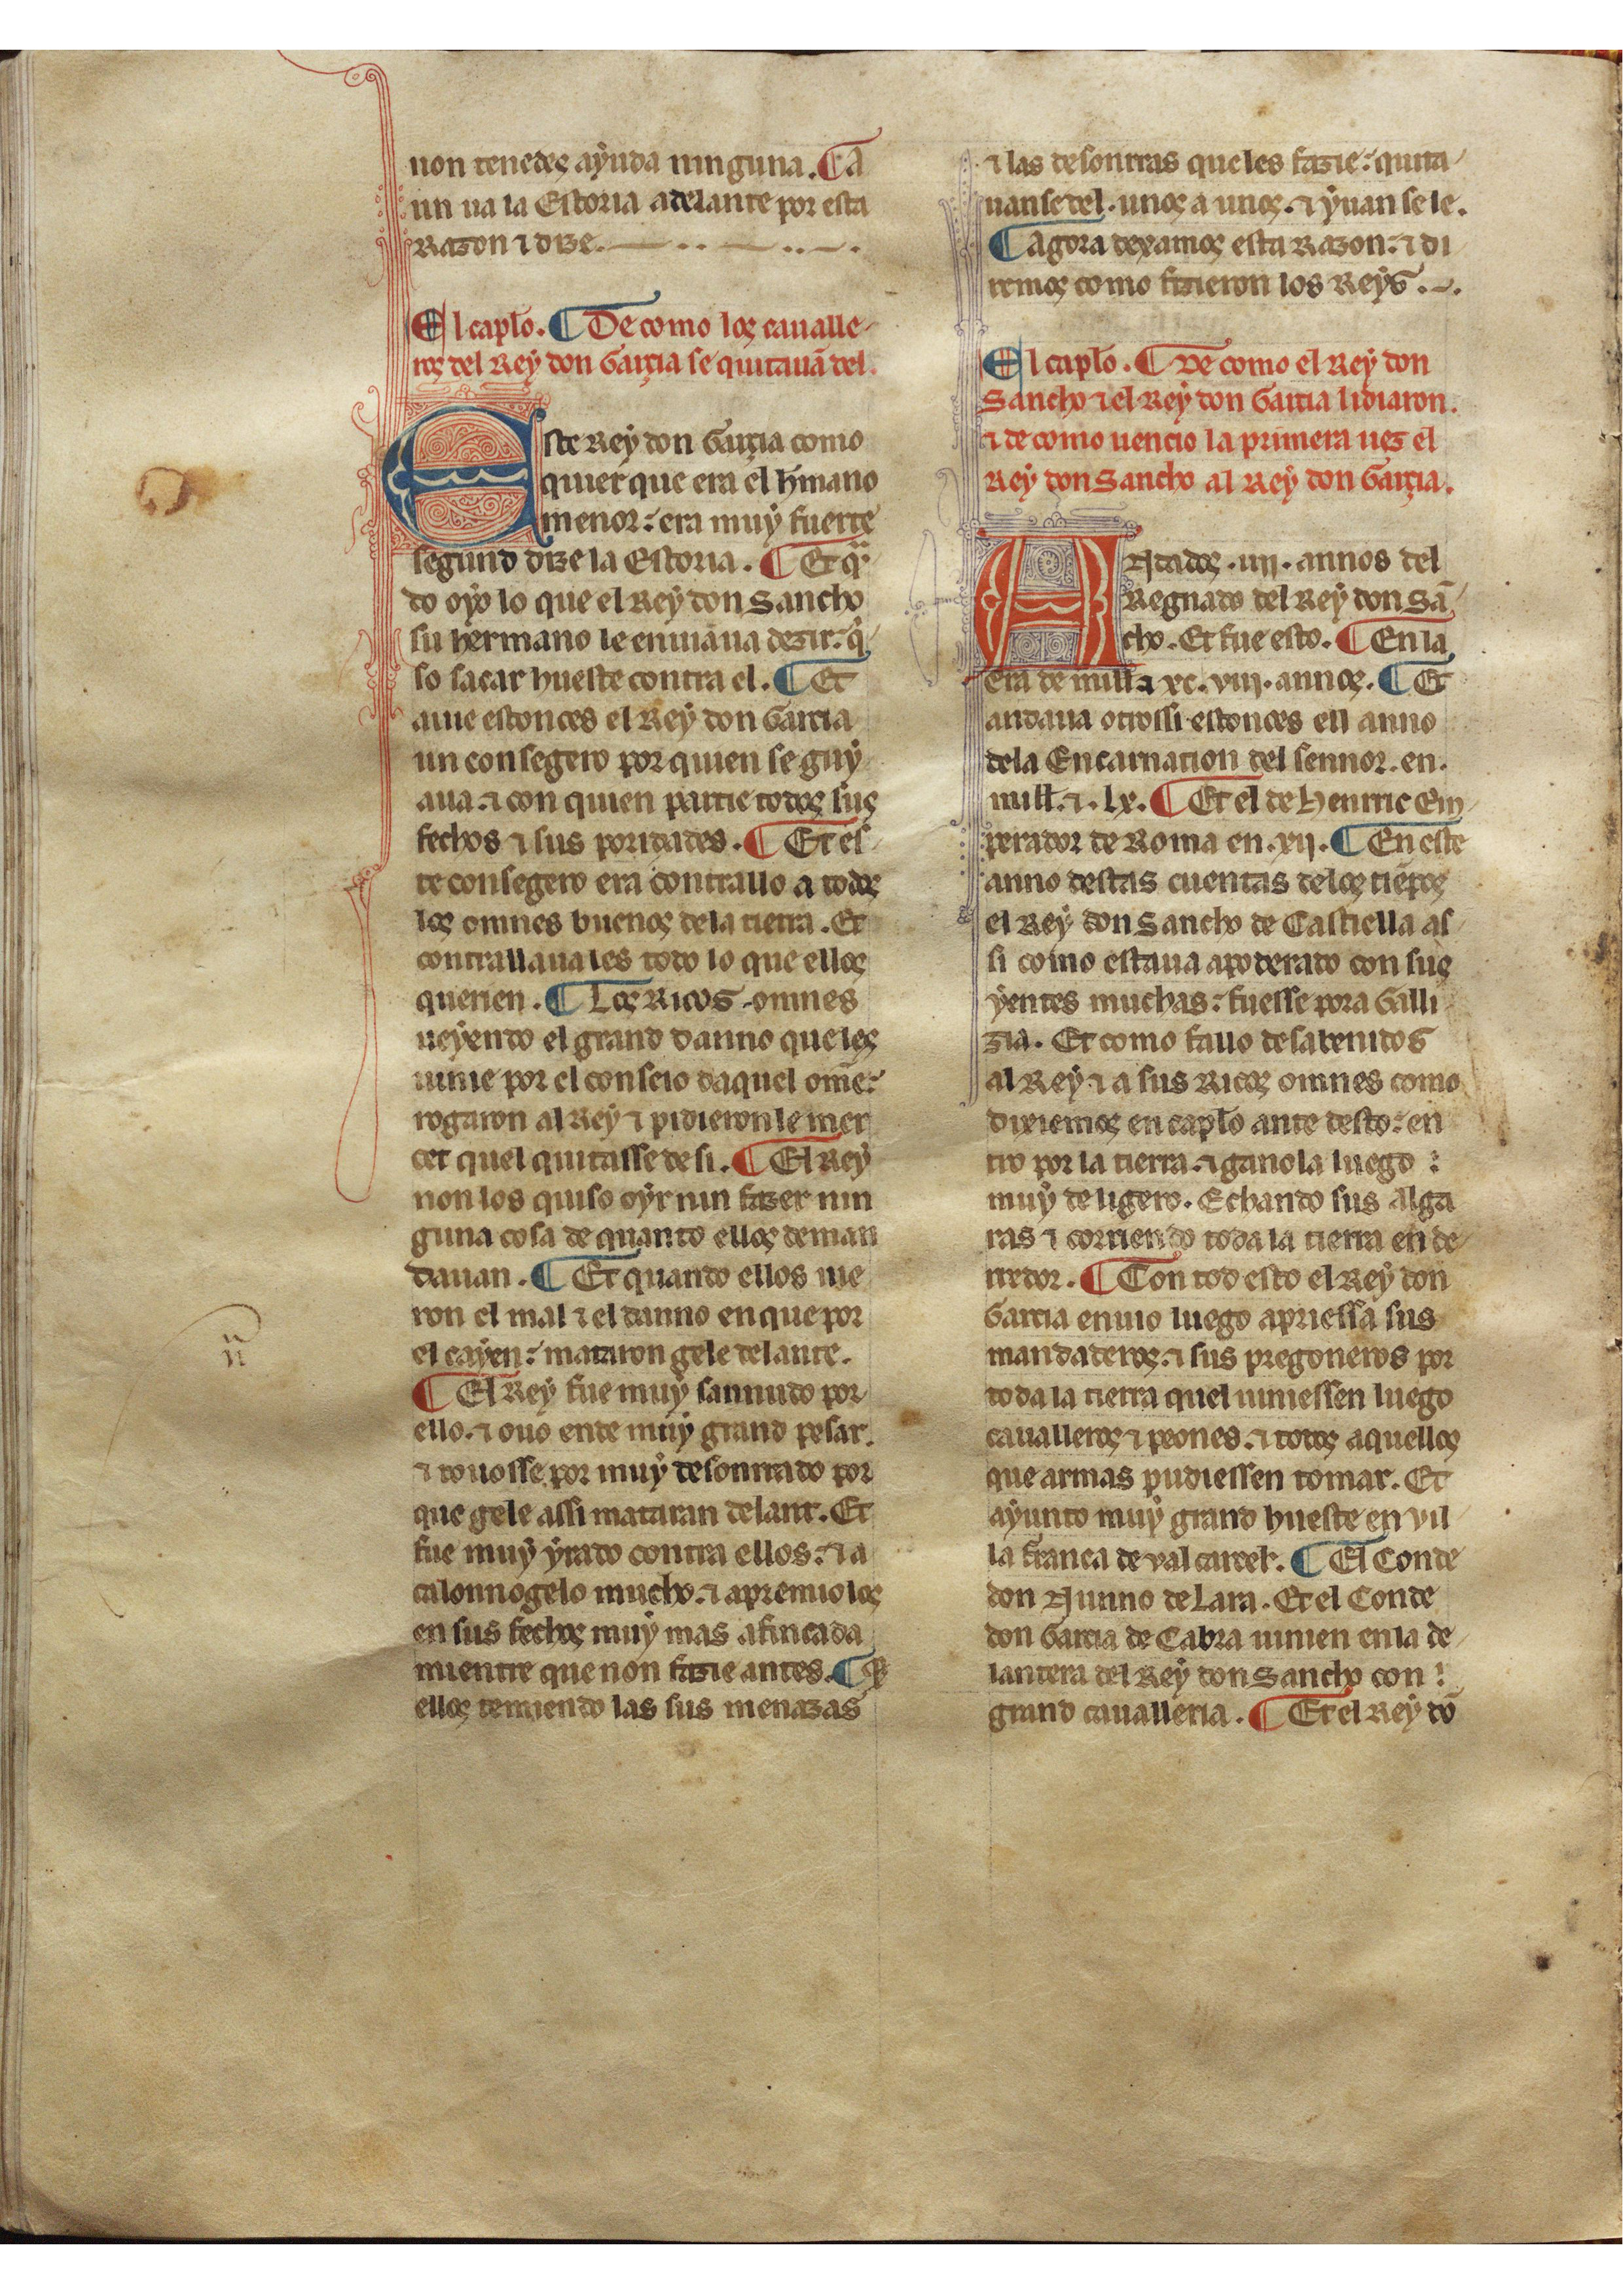 non tenedes aẏuda ninguna. ¶ A
un ua la Estoria adelante por esta
Razon ⁊ dize.
El caplo. ¶ De como los cauallẽ
ros del Reẏ don Garçia se quitauã del.
Este Reẏ don Garçia como
quier que era el hmano
menor: era muẏ fuerte
segund dize la Estoria. ¶ Et qn̄
do oẏo lo que el Reẏ don Sancho
su hermano le enuiaua dezir: q̇
so sacar hueste contra el. ¶ Et
auie estonces el Reẏ don Garcia
un consegero por quien se guẏ
aua. ⁊ con quien partie todos sus
fechos ⁊ sus poridades. ¶ Et es
te consegero era contrallo a todos
los omnes buenos dela tierra. Et
contrallauales todo lo que ellos
querien. ¶ Los Ricos omnes
ueẏendo el grand danno queles
uinie por el conseio daquel omẽ:
rogaron al Reẏ ⁊ pidieronle mer
cet quel quitasse de si. ¶ El Reẏ
non los quiso oẏr nin fazer nin
guna cosa de quanto ellos deman
dauan. ¶ Et quando ellos uie
ron el mal ⁊ el danno en que por
el caẏen: mataron gele delante.
¶ El Reẏ fue muẏ sannudo por
ello. ⁊ ouo ende muẏ grand pesar.
⁊ touosse por muẏ desonrrado por
que gele assi mataran delant. Et
fue muẏ ẏrado contra ellos: ⁊ a
calonnogelo mucho. ⁊ apremiolos
en sus fechos muẏ mas afincada
mientre que non fazie antes. ¶ ꝑ
ellos temiendo las sus menazas
⁊ las desonrras queles fazie: quita
uanse del. unos a unos. ⁊ ẏuan sele.
¶ Agora dexamos esta Razon: ⁊ di
remos como fizieron los Reẏs.
El caplo. ¶ De como el Reẏ don
Sancho ⁊ el Reẏ don Garcia lidiaron.
⁊ de como uencio la primera uez el
Reẏ don Sancho al Reẏ don Garçia.
Andados .iiij. annos del
Regnado del Reẏ don Sã
cho. Et fue esto. ¶ En la
era de mill ⁊ xc. viij. annos. ¶ Et
andaua otrossi estonces ell anno
dela Encarnation del sennor. en.
mill. ⁊. lx. ¶ Et el de Henrric Em
perador de Roma en .xij. ¶ En este
anno destas cuentas delos tiẽpos
el Reẏ don Sancho de Castiella as
si como estaua apoderado con sus
ẏentes muchas: fuesse pora Galli
zia. Et como fallo desabenidos
al Reẏ ⁊ a sus Ricos omnes como
dixiemos en caplo ante desto: en
tro por la tierra. ⁊ ganola luego :
muẏ de ligero. Echando sus alga
ras ⁊ corriendo toda la tierra en de
rredor. ¶ Con tod esto el Reẏ don
Garcia enuio luego apriessa sus
mandaderos. ⁊ sus pregoneros por
toda la tierra quel uiniessen luego
caualleros ⁊ peones. ⁊ todos aquellos
que armas pudiessen tomar. Et
aẏunto muẏ grand hueste en vil
la franca de val carcel. ¶ El Conde
don Nunno de Lara. Et el Conde
don Garcia de Cabra uinien en la de
lantera del Reẏ don Sancho con :
grand caualleria. ¶ Et el Reẏ dõ